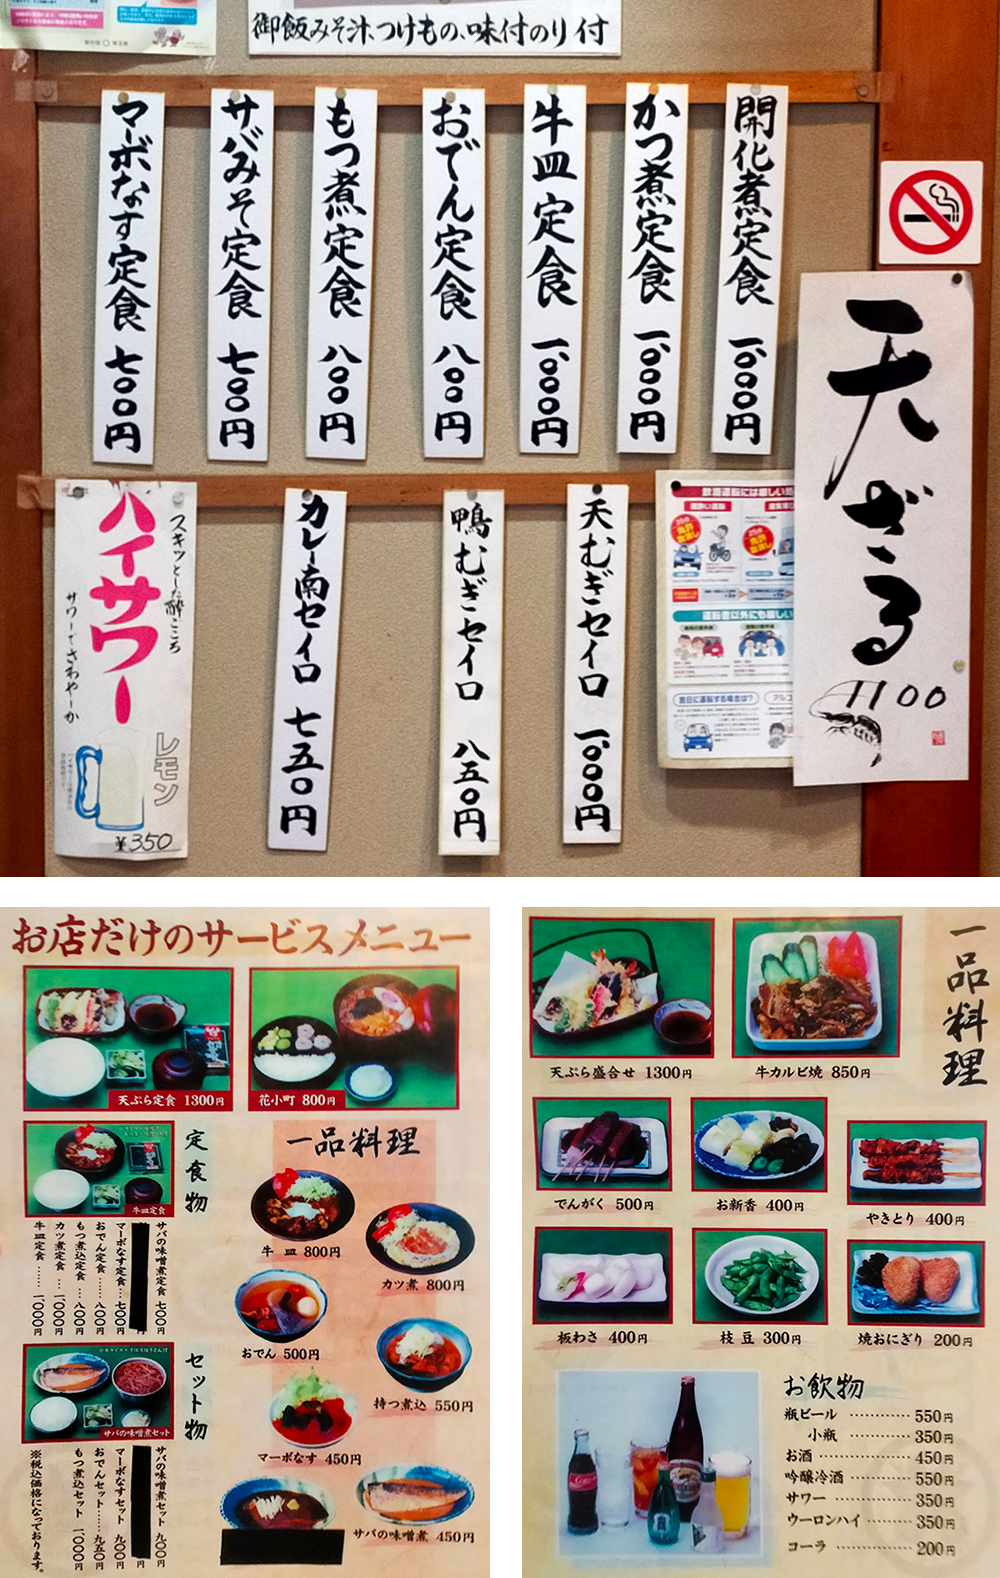 御飯みそ汁、つけもの、味付のり付
開化煮定食 一、〇〇〇円
かつ煮定食 一、〇〇〇円
牛皿定食 一、〇〇〇円
おでん定食 八〇〇円
もつ煮定食 八〇〇円
サバみそ定食 七〇〇円
マーボなす定食 七〇〇円
天ざる
1100
天むぎセイロ 一、〇〇〇円
鴨むぎセイロ 八五〇円
カレー南セイロ 七五〇円
スキッとした酔ごこち
ハイサワー
サワーでさわやーか
レモン
¥350
運転者以外にも厳しい
翌日に運転する場合は?
お店だけのサービスメニュー
天ぷら定食 1300円
花小町 800円
定食物
牛皿定食
サバの味噌煮定食 七〇〇円
マーボなす定食…七〇〇円
おでん定食……八〇〇円
もつ煮込定食…八〇〇円
カツ煮定食…一、〇〇〇円
牛皿定食……一、〇〇〇円
セット物
サバの味噌煮セット
サバの味噌煮セット 九〇〇円
マーボなすセット 九〇〇円
おでんセット……九五〇円
もつ煮込セット 一、〇〇〇円
※税込価格になっております。
一品料理
牛皿 800円
カツ煮 800円
おでん 500円
持つ煮込 550円
マーボなす 450円
サバの味噌煮 450円
一品料理
天ぷら盛合せ 1300円
牛カルビ焼 850円
でんがく 500円
お新香 400円
やきとり 400円
板わさ 400円
枝豆 300円
焼おにぎり 200円
お飲物
瓶ビール ………… 550円
小瓶 ………… 350円
お酒 ………… 450円
吟醸冷酒 ………… 550円
サワー ………… 350円
ウーロンハイ ………… 350円
コーラ ………… 200円